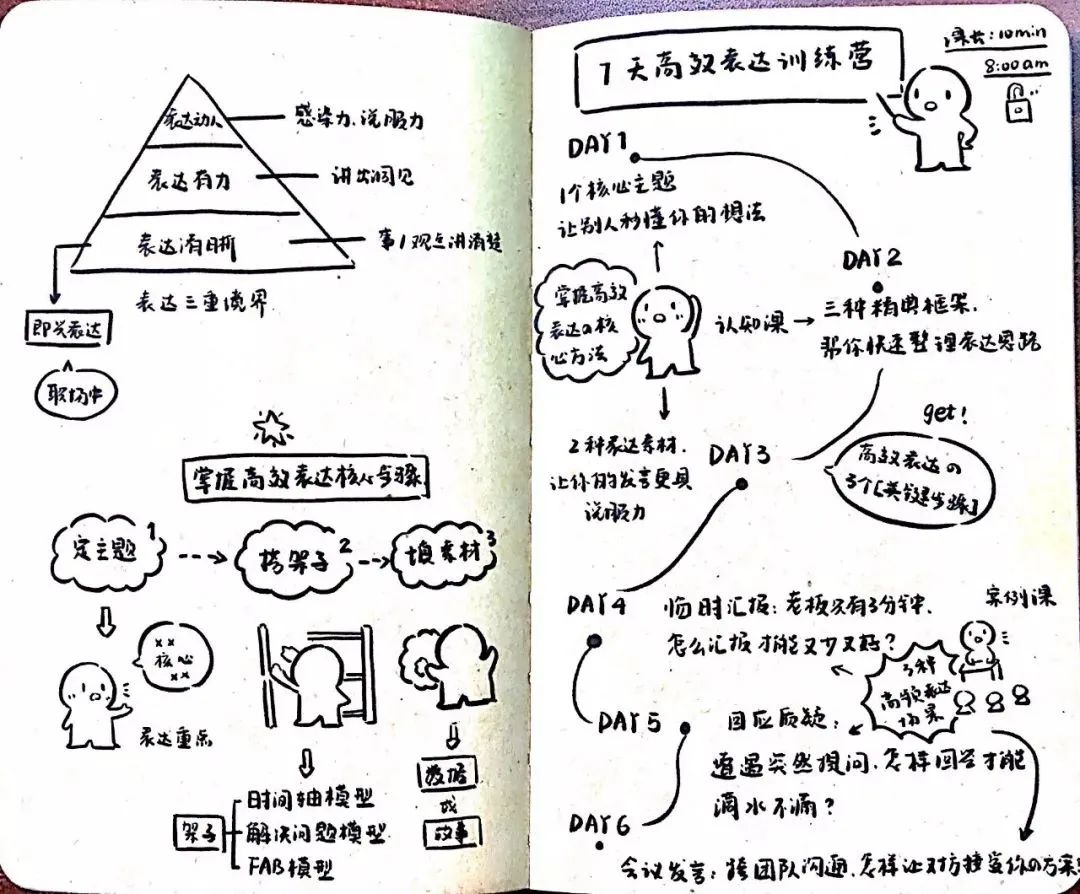 表达动人
感染力、说服力
表达有力
讲出洞见
表达清晰
事/观点讲清楚
表达三重境界
即兴表达
职场中
掌握高效表达核心步骤
定主题 1
搭架子 2
填素材 3
××
核心
××
表达重点
架子
时间轴模型
解决问题模型
FAB模型
数据
或
故事
7天高效表达训练营
课长:10min
8:00am
DAY1
1个核心主题
让别人秒懂你的想法
DAY2
三种精典框架.
帮你快速整理表达思路
掌握高效
表达の核
心方法
认知课
2种表达素材.
让你的发言更具
说服力
DAY3
get!
高效表达の
3个[关键步骤]
DAY4
临时汇报:老板只有3分钟.
怎么汇报才能又少又好?
案例课
3种
高频表达
场景
DAY5
回应质疑:
遭遇突然提问.怎样回答才能
滴水不漏?
DAY6
会议发言:跨团队沟通.怎样让对方接受你の方案